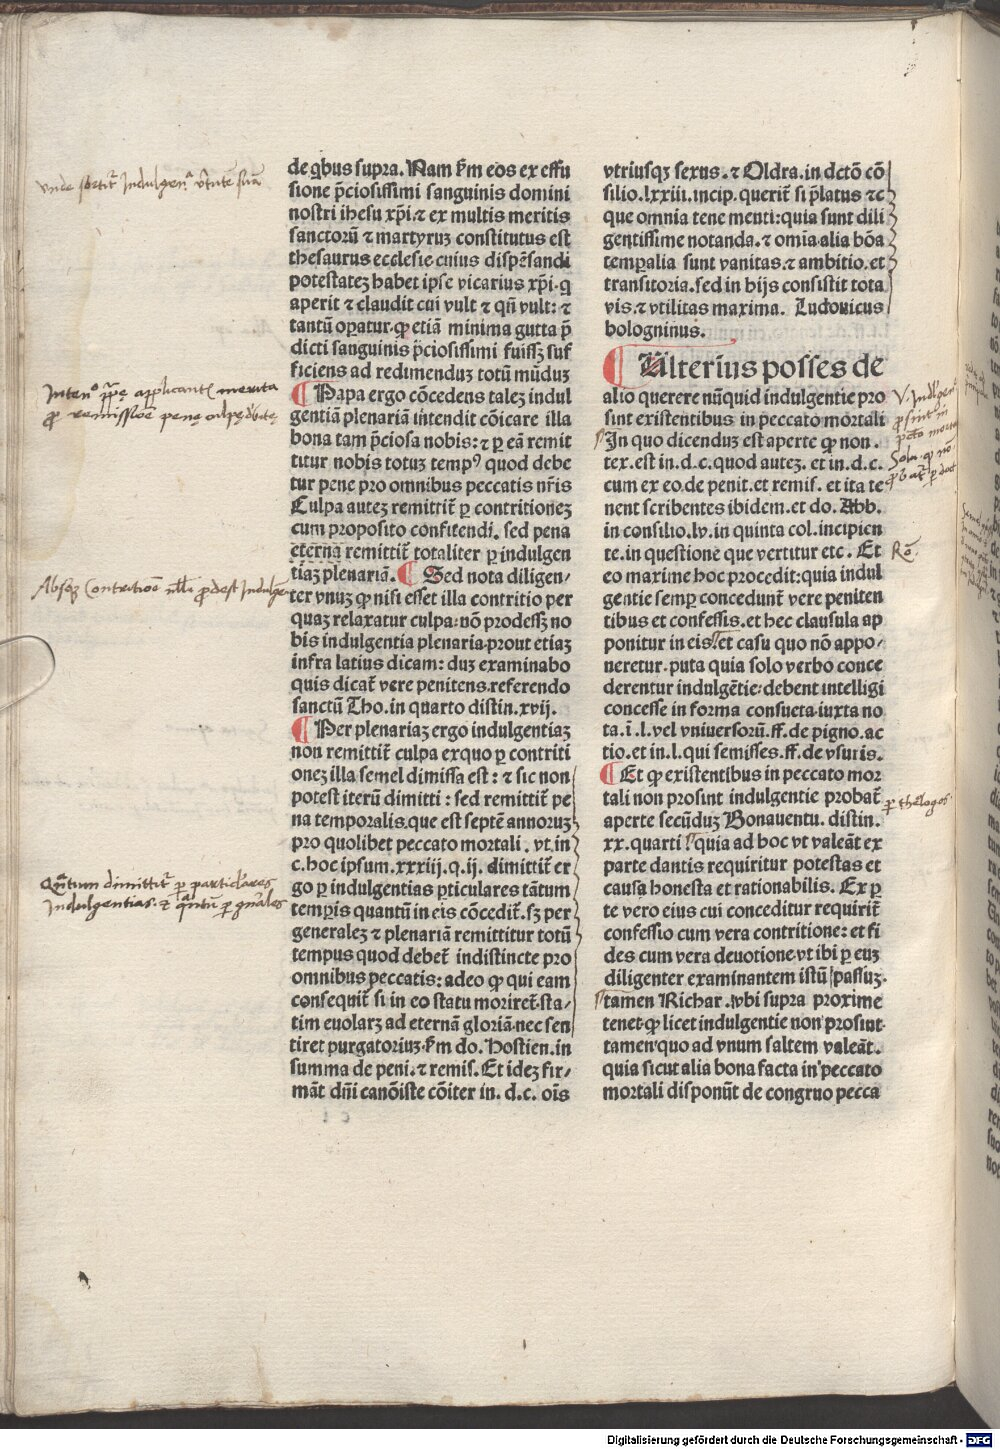 de qbus supra. Nam km eos ex effu
sione p̄ciosissimi sanguinis domini
nostri ihesu xp̄i ⁊ ex multis meritis
sanctorū ⁊ martyruꝫ constitutus est
thesaurus ecclesie cuius dispēsandi
potestateꝫ habet ipse vicarius xp̄i. q
aperit ⁊ claudit cui vult ⁊ qn̄ vult: ⁊
tantū oꝑatur. ꝙ etiā minima gutta p̄
dicti sanguinis p̄ciosissimi fuissꝫ suf
ficiens ad redimenduꝫ totū mūduꝫ
¶ Papa ergo cōcedens taleꝫ indul
gentiā plenariā intendit cōicare illa
bona tam p̄ciosa nobis: ⁊ ꝑ eā remit
titur nobis totuꝫ tempꝰ quod debe
tur pene pro omnibus peccatis nr̄is
Culpa auteꝫ remittit̄ ꝑ contritioneꝫ
cum proposito confitendi. sed pena
eterna remittit̄ totaliter ꝑ indulgen
tiaꝫ plenariā. ¶ Sed nota diligen-
ter vnuꝫ ꝙ nisi esset illa contritio per
quaꝫ relaxatur culpa: nō prodessꝫ no
bis indulgentia plenaria. prout etiaꝫ
infra latius dicam: duꝫ examinabo
quis dicat̄ vere penitens. referendo
sanctū Tho. in quarto distin. xvij.
¶ Per plenariaꝫ ergo indulgentiaꝫ
non remittit̄ culpa exquo ꝑ contriti
oneꝫ illa semel dimissa est: ⁊ sic non
potest iterū dimitti: sed remittit̄ pe
na temporalis. que est septē annoruꝫ
pro quolibet peccato mortali. vt. in
c. hoc ipsum. xxxiij. q. ij. dimittit̄ er
go ꝑ indulgentias ꝑticulares tātum
temꝑis quantū in eis cōcedit̄. sꝫ per
generaleꝫ ⁊ plenariā remittitur totū
tempus quod debet̄ indistincte pro
omnibus peccatis: adeo ꝙ qui eam
consequit̄ si in eo statu moriret̄. sta-
tim euolarꝫ ad eternā gloriā. nec sen
tiret purgatoriuꝫ. km do. Hostien. in
summa de peni. ⁊ remis. Et ideꝫ fir-
māt dn̄i canōiste cōiter in. d. c. oīs
vtriusqꝫ sexus. ⁊ Oldra. in detō cō
silio. lxxiii. incip. querit̄ si p̄latus ⁊c
que omnia tene menti: quia sunt dili
gentissime notanda. ⁊ omīa alia bōa
temꝑalia sunt vanitas. ⁊ ambitio. et
transitoria. sed in hijs consistit tota
vis. ⁊ vtilitas maxima. Ludouicus
bologninus.
¶ Ulterius posses de
alio querere nūquid indulgentie pro
sint existentibus in peccato mortali
In quo dicenduꝫ est aperte ꝙ non.
tex. est in. d. c. quod auteꝫ. et in. d. c.
cum ex eo. de penit. et remis. et ita te
nent scribentes ibidem. et do. Abb.
in consilio. lv. in quinta col. incipien
te. in questione que vertitur etc. Et
eo maxime hoc procedit: quia indul
gentie semꝑ concedunt̄ vere peniten
tibus et confessis. et hec clausula ap
ponitur in eis. et casu quo nō appo-
neretur. puta quia solo verbo conce
derentur indulgētie: debent intelligi
concesse in forma consueta. iuxta no
ta. ī. l. vel vniuersorū. ff. de pigno. ac
tio. et in. l. qui semisses. ff. de vsuris.
¶ Et ꝙ existentibus in peccato mor
tali non prosint indulgentie probat̄
aperte secūduꝫ Bonauentu. distin.
xx. quarti quia ad hoc vt valeāt ex
parte dantis requiritur potestas et
causa honesta et rationabilis. Ex ꝑ
te vero eius cui conceditur requirit̄
confessio cum vera contritione: et fi
des cum vera deuotione. vt ibi ꝑ euꝫ
diligenter examinantem istū passuꝫ.
tamen Richar. vbi supra proxime
tenet. ꝙ licet indulgentie non prosint
tamen quo ad vnum saltem valeāt.
quia sicut alia bona facta in peccato
mortali disponūt de congruo pecca
Ro.
ꝑ theologos.
Digitalisierung gefördert durch die Deutsche Forschungsgemeinschaft - DFG